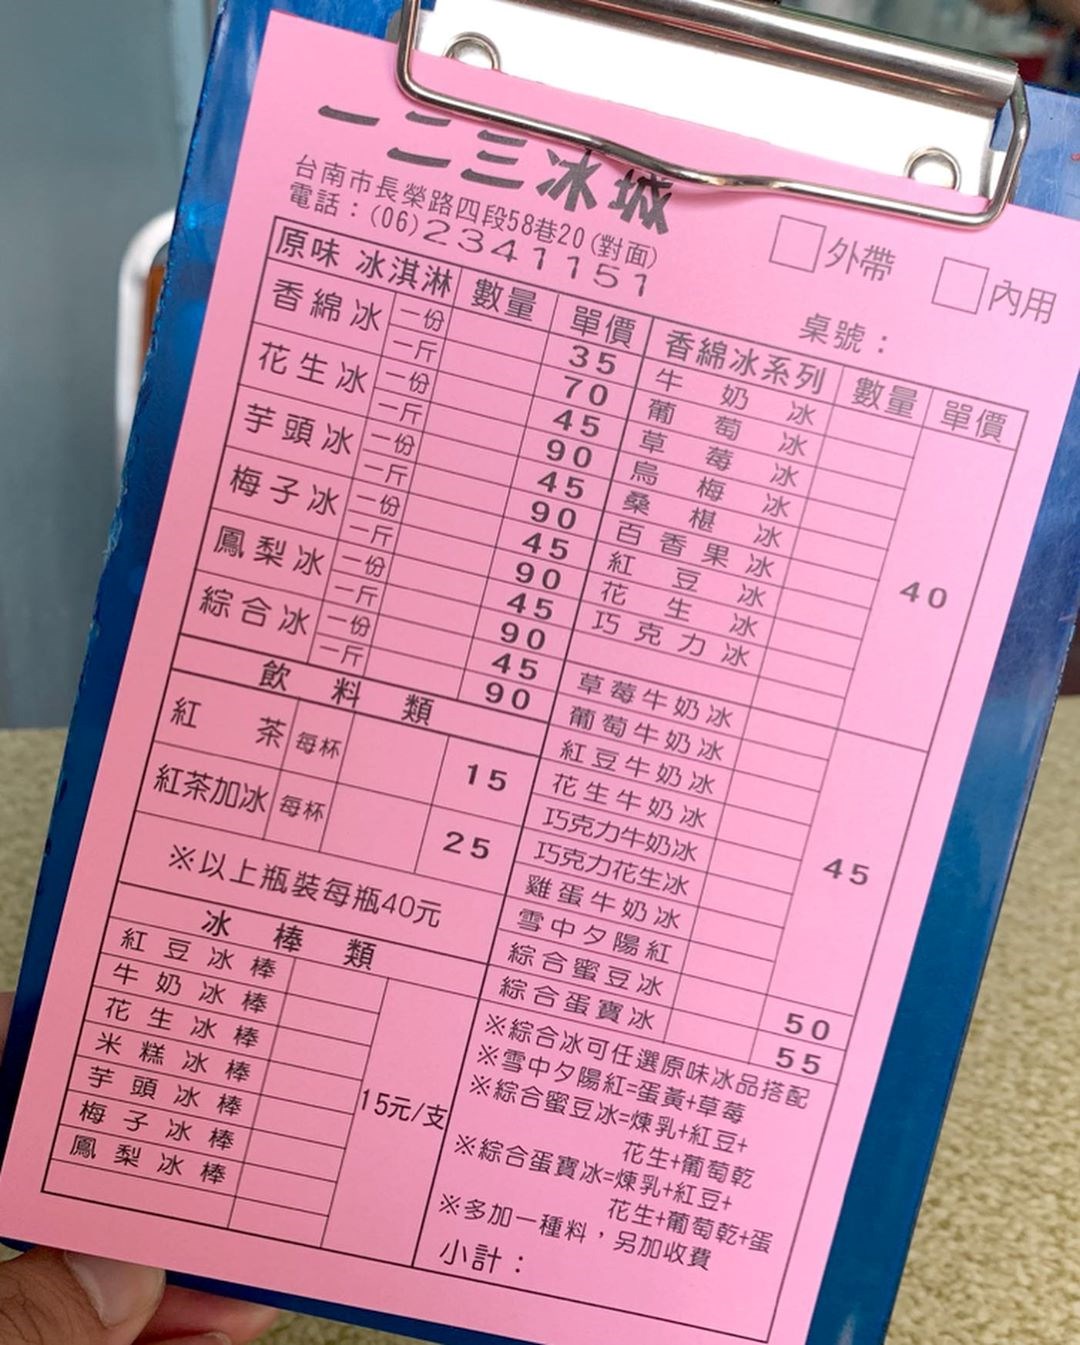 一二三冰城
台南市長榮路四段58巷20(對面)
電話：(06)2341151
外帶 內用
桌號：
原味 冰淇淋 數量 單價
香綿冰 一份 35
一斤 70
花生冰 一份 45
一斤 90
芋頭冰 一份 45
一斤 90
梅子冰 一份 45
一斤 90
鳳梨冰 一份 45
一斤 90
綜合冰 一份 45
一斤 90
飲料類
紅茶 每杯 15
紅茶加冰 每杯 25
※以上瓶裝每瓶40元
冰棒類
紅豆冰棒
牛奶冰棒
花生冰棒
米糕冰棒
芋頭冰棒
梅子冰棒
鳳梨冰棒
15元/支
香綿冰系列 數量 單價
牛奶冰
葡萄冰
草莓冰
烏梅冰
桑椹冰
百香果冰
紅豆冰
花生冰
巧克力冰
40
草莓牛奶冰
葡萄牛奶冰
紅豆牛奶冰
花生牛奶冰
巧克力牛奶冰
巧克力花生冰
雞蛋牛奶冰
雪中夕陽紅
45
綜合蜜豆冰 50
綜合蛋寶冰 55
※綜合冰可任選原味冰品搭配
※雪中夕陽紅=蛋黃+草莓
※綜合蜜豆冰=煉乳+紅豆+
花生+葡萄乾
※綜合蛋寶冰=煉乳+紅豆+
花生+葡萄乾+蛋
※多加一種料，另加收費
小計：